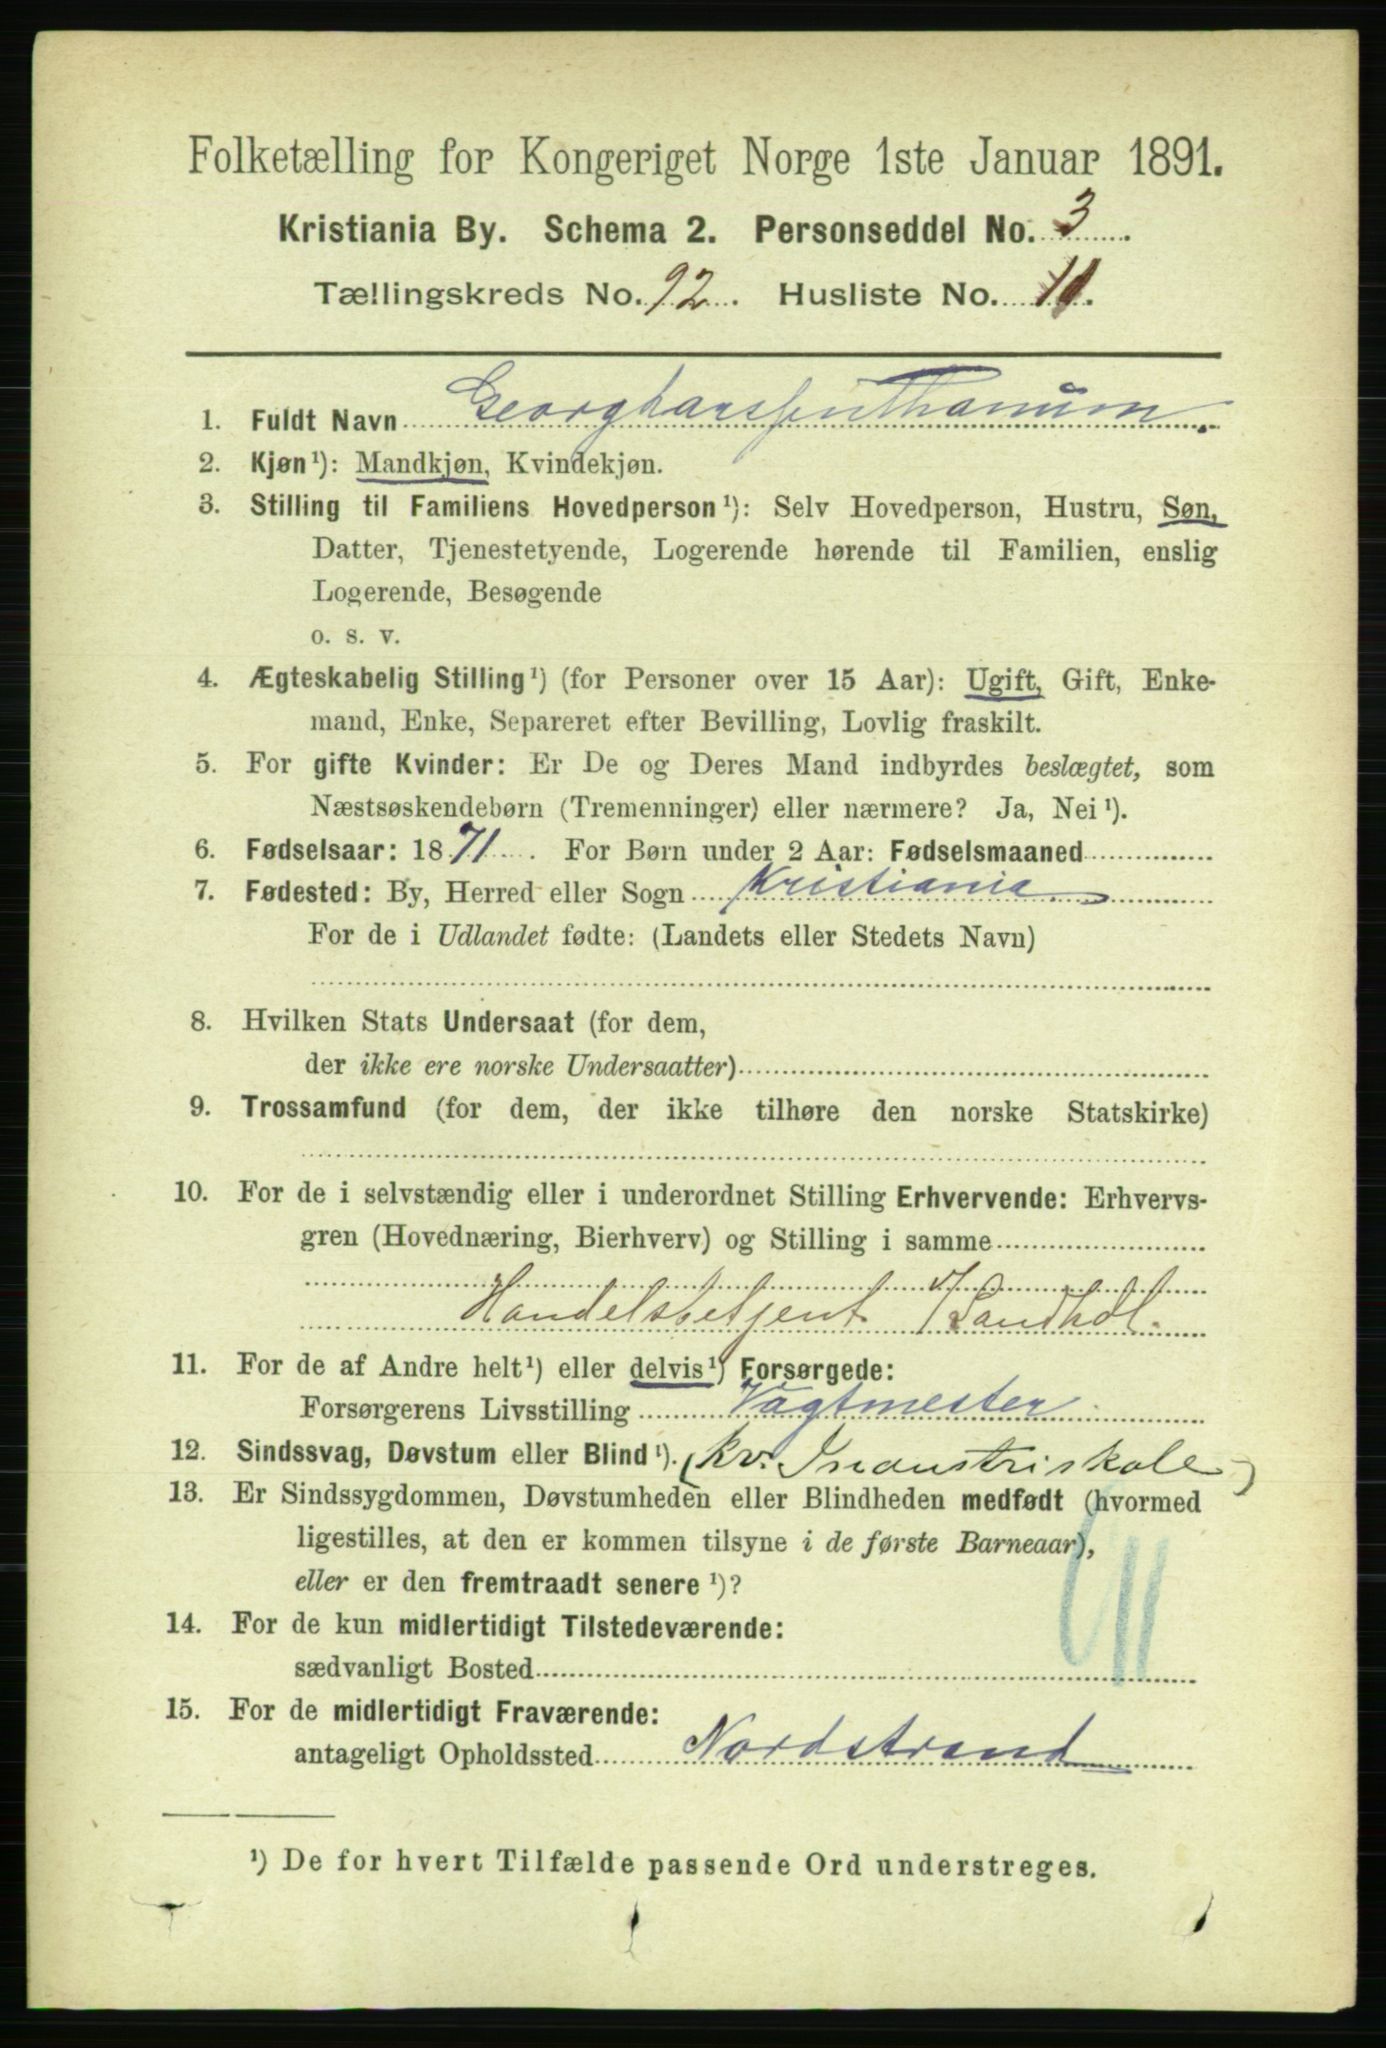 Folketælling for Kongeriget Norge 1ste Januar 1891.
Kristiania By. Schema 2. Personseddel No. 3.
Tællingskreds No. 92. Husliste No. 10.
1. Fuldt Navn Georg Thanum.
2. Kjøn¹): Mandkjøn, Kvindekjøn.
3. Stilling til Familiens Hovedperson¹): Selv Hovedperson, Hustru, Søn,
Datter, Tjenestetyende, Logerende hørende til Familien, enslig
Logerende, Besøgende
o. s. v.
4. Ægteskabelig Stilling¹) (for Personer over 15 Aar): Ugift, Gift, Enke-
mand, Enke, Separeret efter Bevilling, Lovlig fraskilt.
5. For gifte Kvinder: Er De og Deres Mand indbyrdes beslægtet, som
Næstsøskendebørn (Tremenninger) eller nærmere? Ja, Nei¹).
6. Fødselsaar: 1871. For Børn under 2 Aar: Fødselsmaaned
7. Fødested: By, Herred eller Sogn Kristiania
For de i Udlandet fødte: (Landets eller Stedets Navn)
8. Hvilken Stats Undersaat (for dem,
der ikke ere norske Undersaatter)
9. Trossamfund (for dem, der ikke tilhøre den norske Statskirke)
10. For de i selvstændig eller i underordnet Stilling Erhvervende: Erhvervs-
gren (Hovednæring, Bierhverv) og Stilling i samme
Handelsbetjent v/ Landhdl.
11. For de af Andre helt¹) eller delvis¹) Forsørgede:
Forsørgerens Livsstilling Vagtmester
12. Sindssvag, Døvstum eller Blind¹). (Kv. Industriskole)
13. Er Sindssygdommen, Døvstumheden eller Blindheden medfødt (hvormed
ligestilles, at den er kommen tilsyne i de første Barneaar),
eller er den fremtraadt senere¹)?
14. For de kun midlertidigt Tilstedeværende:
sædvanligt Bosted
15. For de midlertidigt Fraværende:
antageligt Opholdssted Nordstrand
¹) De for hvert Tilfælde passende Ord understreges.